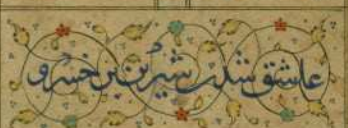 عاشق شدن شیرین بر خسرو